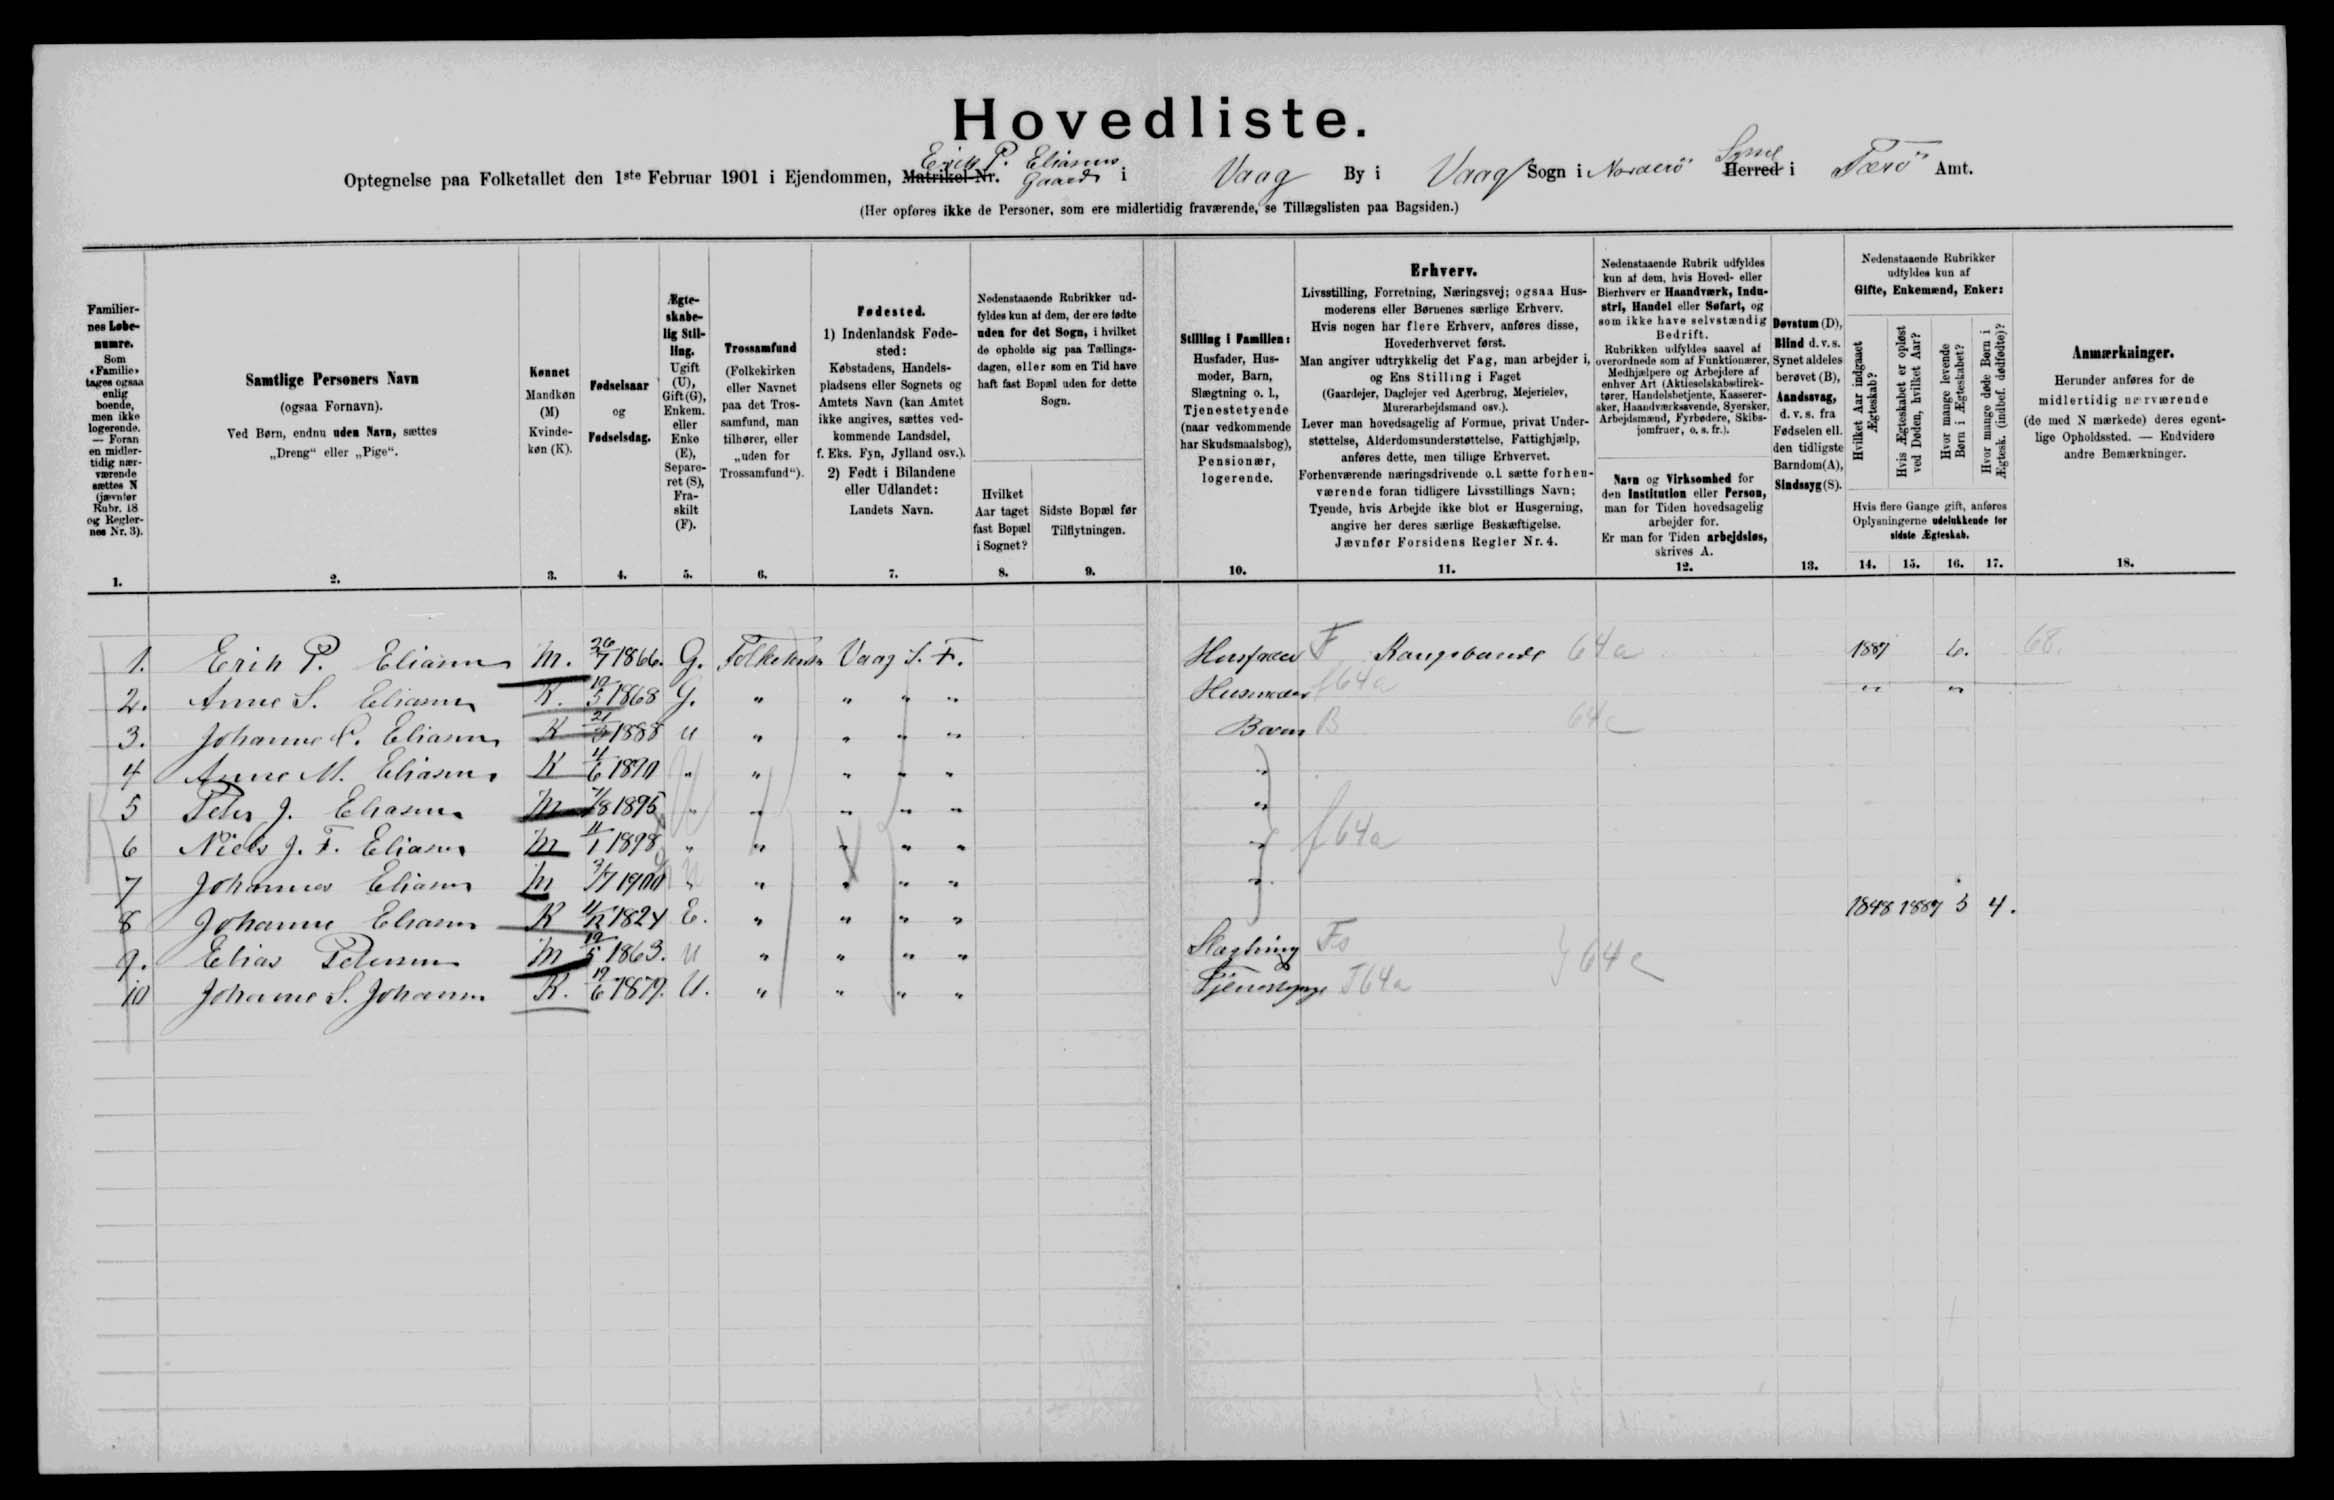 Hovedliste.
Optegnelse paa Folketallet den 1ste Februar 1901 i Ejendommen, Matrikel-Nr. Erik P. Eliasens Gaard i Vaag By i Vaag Sogn i Norderö Herred Syssel i Færö Amt.
(Her opføres ikke de Personer, som ere midlertidig fraværende, se Tillægslisten paa Bagsiden.)
Familiernes Løbenumre.
Som «Familie» tages ogsaa enlig boende, men ikke logerende. — Foran en midlertidig nærværende sættes N (jævnfør Rubr. 18 og Reglernes Nr. 3).
1.
Samtlige Personers Navn
(ogsaa Fornavn).
Ved Børn, endnu uden Navn, sættes
„Dreng“ eller „Pige“.
2.
Kønnet
Mandkøn (M)
Kvindekøn (K).
3.
Fødselsaar
og
Fødselsdag.
4.
Ægteskabelig Stilling.
Ugift (U), Gift (G), Enkem. eller Enke (E), Separeret (S), Fraskilt (F).
5.
Trossamfund
(Folkekirken eller Navnet paa det Trossamfund, man tilhører, eller „uden for Trossamfund“).
6.
Fødested.
1) Indenlandsk Fødested:
Købstadens, Handelspladsens eller Sognets og Amtets Navn (kan Amtet ikke angives, sættes vedkommende Landsdel, f. Eks. Fyn, Jylland osv.).
2) Født i Bilandene eller Udlandet:
Landets Navn.
7.
Nedenstaaende Rubrikker udfyldes kun af dem, der ere fødte uden for det Sogn, i hvilket de opholde sig paa Tællingsdagen, eller som en Tid have haft fast Bopæl uden for dette Sogn.
Hvilket Aar taget fast Bopæl i Sognet?
8.
Sidste Bopæl før Tilflytningen.
9.
Stilling i Familien:
Husfader, Husmoder, Barn, Slægtning o. l., Tjenestetyende (naar vedkommende har Skudsmaalsbog), Pensionær, logerende.
10.
Erhverv.
Livsstilling, Forretning, Næringsvej; ogsaa Husmoderens eller Børnenes særlige Erhverv.
Hvis nogen har flere Erhverv, anføres disse, Hovederhvervet først.
Man angiver udtrykkelig det Fag, man arbejder i, og Ens Stilling i Faget
(Gaardejer, Daglejer ved Agerbrug, Mejerielev, Murerarbejdsmand osv.).
Lever man hovedsagelig af Formue, privat Understøttelse, Alderdomsunderstøttelse, Fattighjælp, anføres dette, men tillige Erhvervet.
Forhenværende næringsdrivende o. l. sætte forhenværende foran tidligere Livsstillings Navn;
Tyende, hvis Arbejde ikke blot er Husgerning, angive her deres særlige Beskæftigelse.
Jævnfør Forsidens Regler Nr. 4.
11.
Nedenstaaende Rubrik udfyldes kun af dem, hvis Hoved- eller Bierhverv er Haandværk, Industri, Handel eller Søfart, og som ikke have selvstændig Bedrift.
Rubrikken udfyldes saavel af overordnede som af Funktionærer, Medhjælpere og Arbejdere af enhver Art (Aktieselskabsdirektører, Handelsbetjente, Kasserersker, Haandværkssvende, Syersker, Arbejdsmænd, Fyrbødere, Skibsjomfruer, o. s. fr.).
Navn og Virksomhed for den Institution eller Person, man for Tiden hovedsagelig arbejder for.
Er man for Tiden arbejdsløs, skrives A.
12.
Døvstum (D), Blind d. v. s. Synet aldeles berøvet (B), Aandssvag, d. v. s. fra Fødselen ell. den tidligste Barndom (A), Sindssyg (S).
13.
Nedenstaaende Rubrikker udfyldes kun af
Gifte, Enkemænd, Enker:
Hvilket Aar indgaaet Ægteskab?
Hvis Ægteskabet er opløst ved Døden, hvilket Aar?
Hvor mange levende Børn i Ægteskabet?
Hvor mange døde Børn i Ægtesk. (indbef. dødfødte)?
Hvis flere Gange gift, anføres Oplysningerne udelukkende for sidste Ægteskab.
14. 15. 16. 17.
Anmærkninger.
Herunder anføres for de midlertidig nærværende (de med N mærkede) deres egentlige Opholdssted. — Endvidere andre Bemærkninger.
18.
1. Erik P. Eliasen M. 26/7 1866. G. Folkekirken Vaag S. F. Husfader F Kongsbonde 64a 1887 6. 68.
2. Anne S. Eliasen K. 19/5 1868 G. " " " " Husmoder f64a " "
3. Johanne C. Eliasen K 21/3 1888 U " " " " Barn B 64c
4 Anne M. Eliasen K 4/6 1890 " " " " " "
5 Peter J. Eliasen M 7/8 1895 " " " " " "
6 Niels J. F. Eliasen M 11/1 1898 " " " " " " f64a
7 Johannes Eliasen M 3/7 1900 " " " " " "
8 Johanne Eliasen K 11/12 1824 E. " " " " 1848 1887 3 4.
9. Elias Petersen M 19/5 1863. U " " " " Slægtning Fs 64c
10 Johanne S. Johansen K. 19/6 1879. U. " " " " Tjenestepige T64a